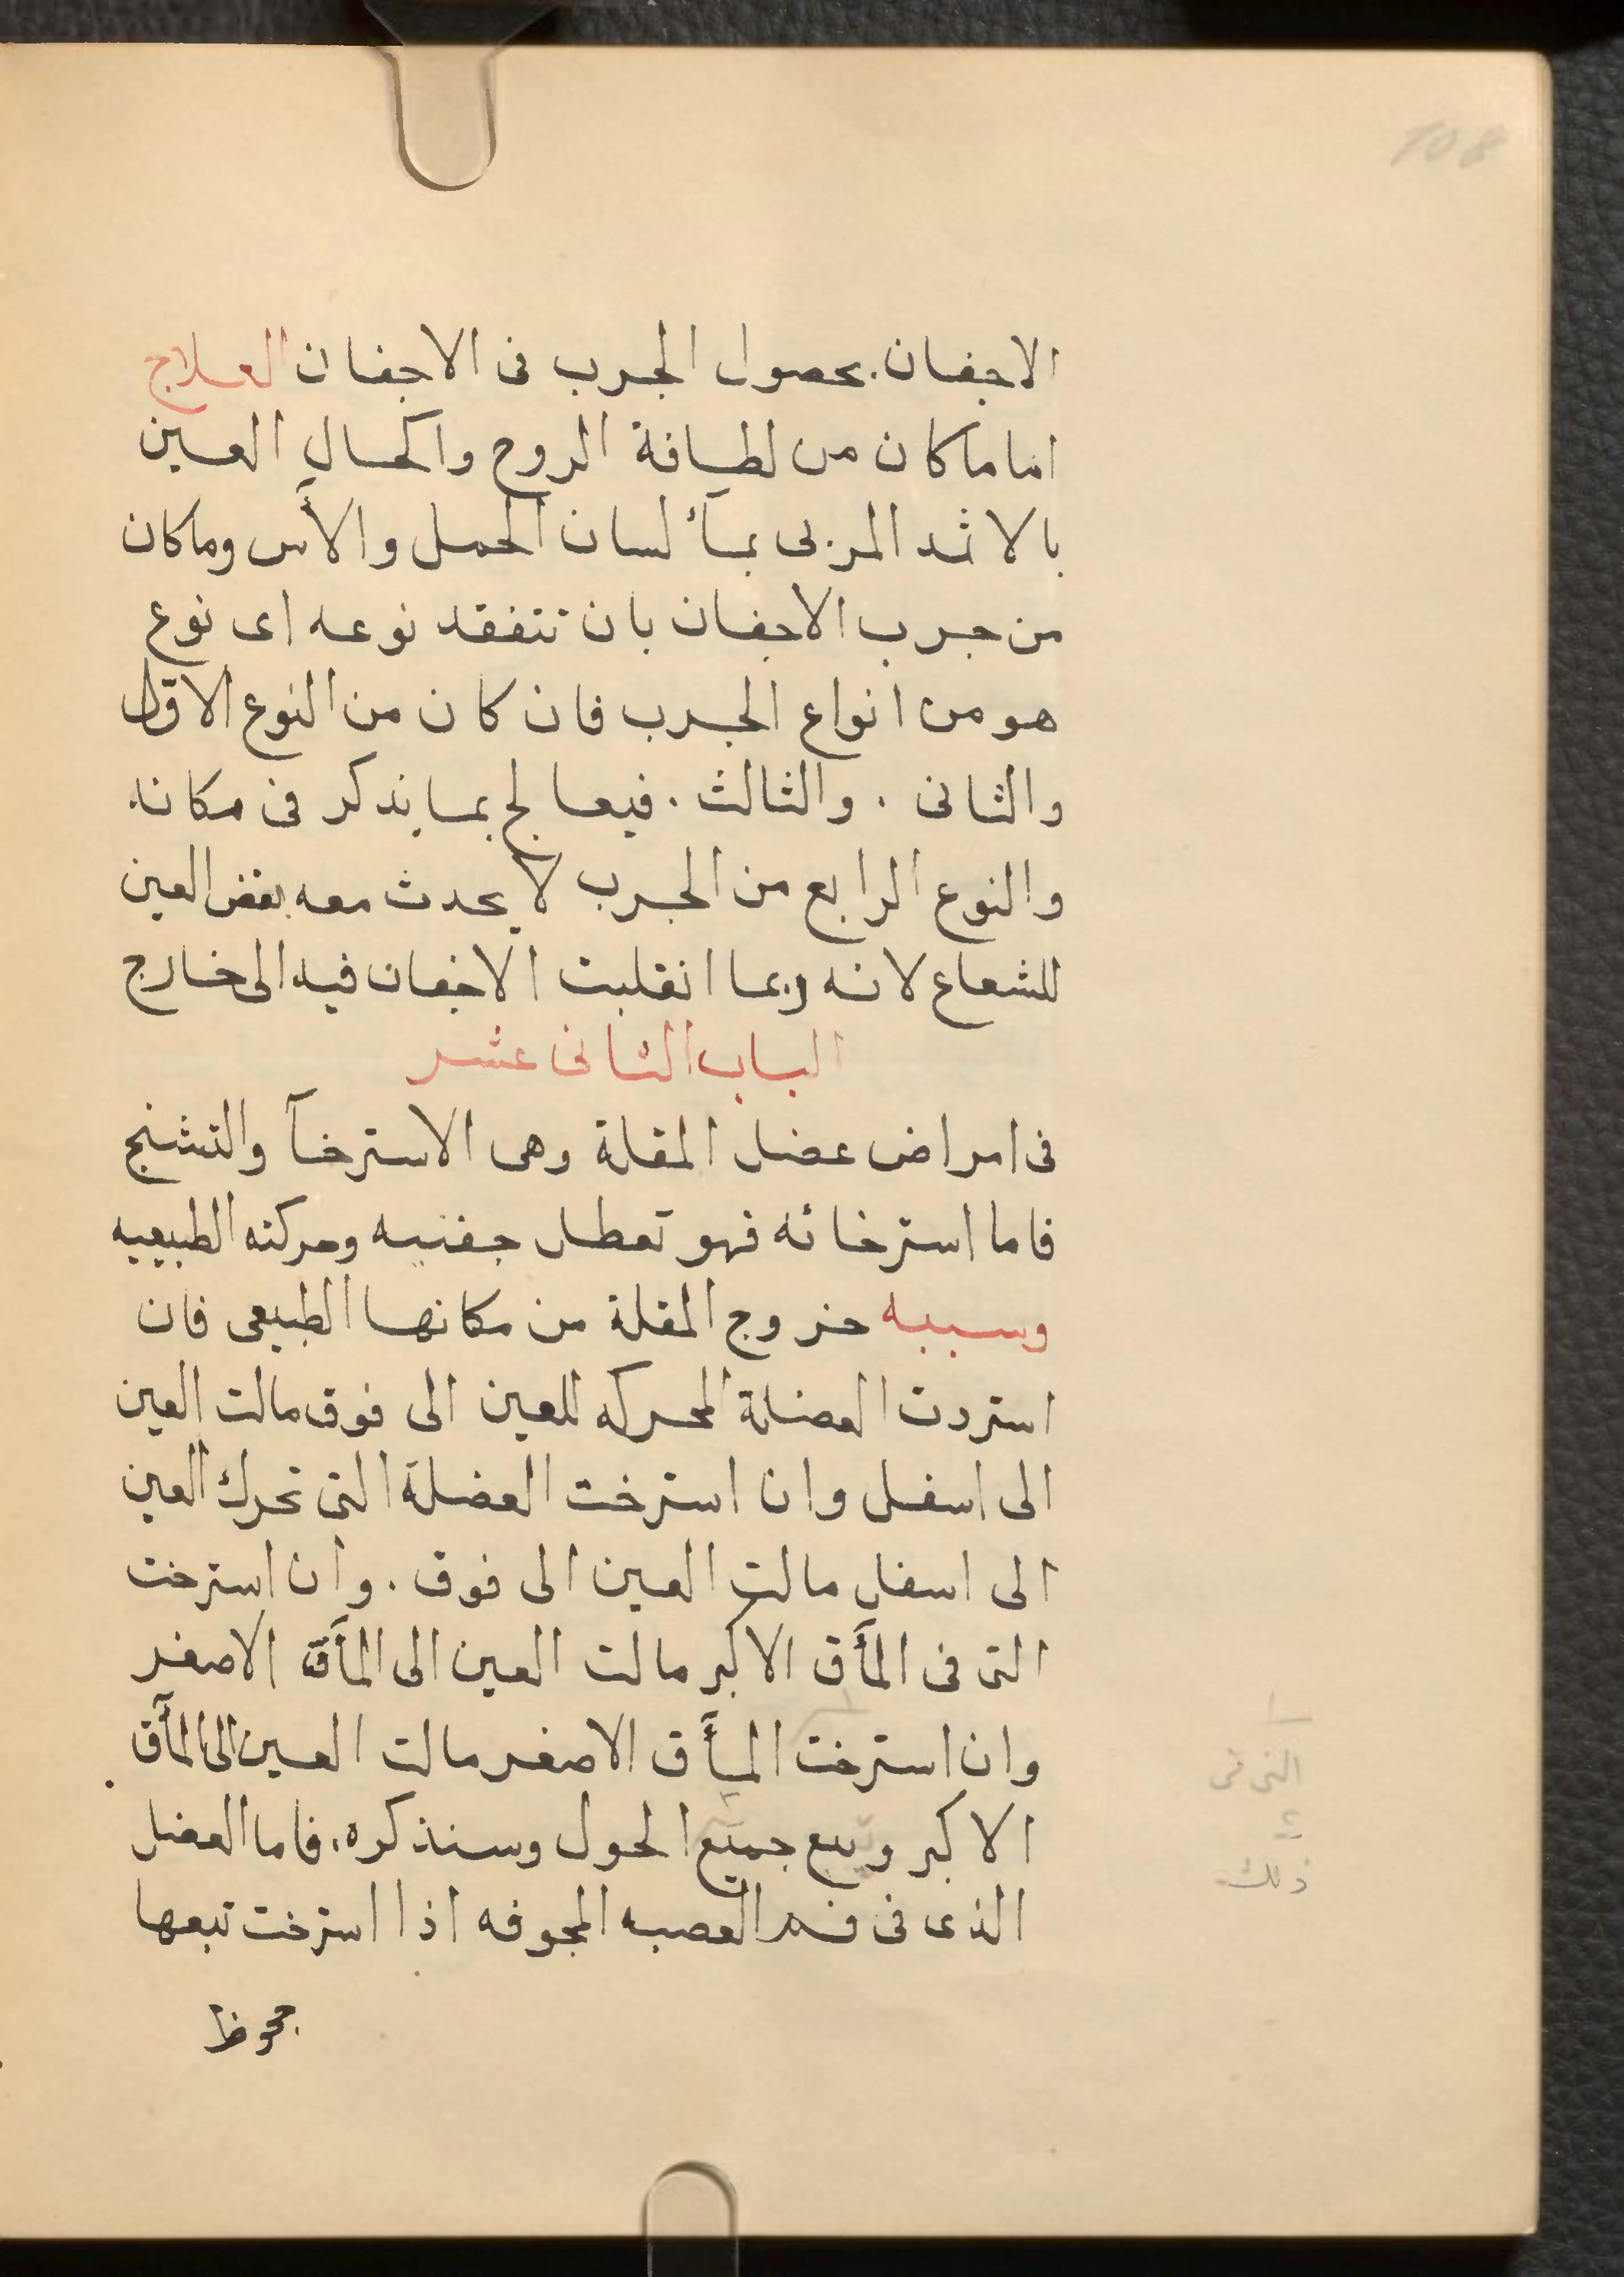 108
الاجفان. بحصول الجرب فى الاجفان العلاج
اما ما كان من لطافة الروح واكحال العين
بالاثمد المربى بمآ لسان الحمل والأس وما كان
من جرب الاجفان بان تتفقد نوعه اى نوع
هو من انواع الجرب فان كان من النوع الاوّل
والثانى . والثالث . فيعالج بما يذكر فى مكانه
والنوع الرابع من الجرب لا يحدث معه بغض العين
للشعاع لانه ربما انقلبت الاجفان فيه الى خارج
الباب الثانى عشر
فى امراض عضل المقلة وهى الاسترخآ والتشنج
فاما استرخائه فهو تعطل جفنيه وحركته الطبيعيه
وسببه خروج المقلة من مكانها الطبيعى فان
استردت العضلة المحركه للعين الى فوق مالت العين
الى اسفل وان استرخت العضلة التى تحرك العين
الى اسفل مالت العين الى فوق . وان استرخت
التى فى المأق الاكبر مالت العين الى المأق الاصغر
وان استرخت المأق الاصغر مالت العين الى المأق
الاكبر ويتبع جميع الحول وسنذكره. فاما العضل
الذى فى فم العصبه المجوفه اذا استرخت تبعها
جحوظ
التى فى
ذلك